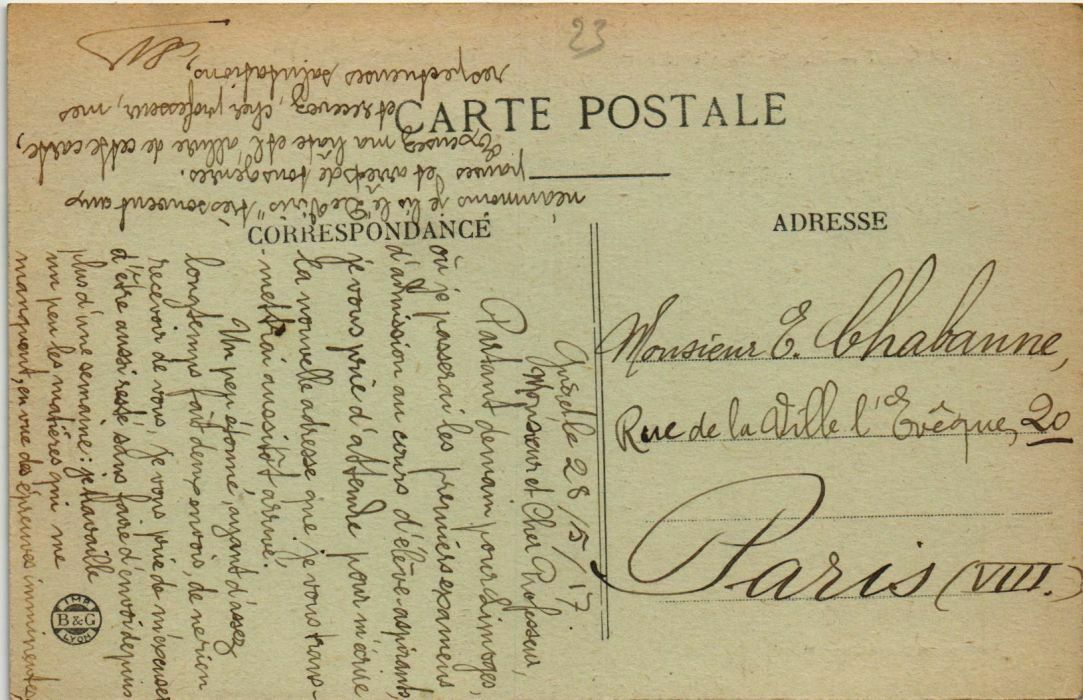 23
CARTE POSTALE
CORRESPONDANCE
ADRESSE
Guéret, le 28/5/17.
Monsieur et Cher Professeur,
Partant demain pour Limoges,
où je passerai les premiers examens
d'admission au cours d'élève-aspirants,
je vous prie d'attendre pour m'écrire
la nouvelle adresse que je vous trans-
mettrai aussitôt arrivé.
Un peu étonné, ayant d'assez
longtemps fait deux envois, de ne rien
recevoir de vous, je vous prie de m'excuser
d'être aussi resté sans faire d'envoi depuis
plus d'une semaine : je travaille
un peu les matières qui me
manquent, en vue des épreuves imminentes,
néanmoins je lis le "De Viris" très souvent aux
pauses et arrêts de tous genres.
Excusez ma hâte et l'allure de cette carte,
et recevez, cher professeur, mes
respectueuses salutations,
Monsieur E. Chabanne,
Rue de la Ville l'Evêque, 20
Paris (VIII.)
IMP.
B & G
LYON